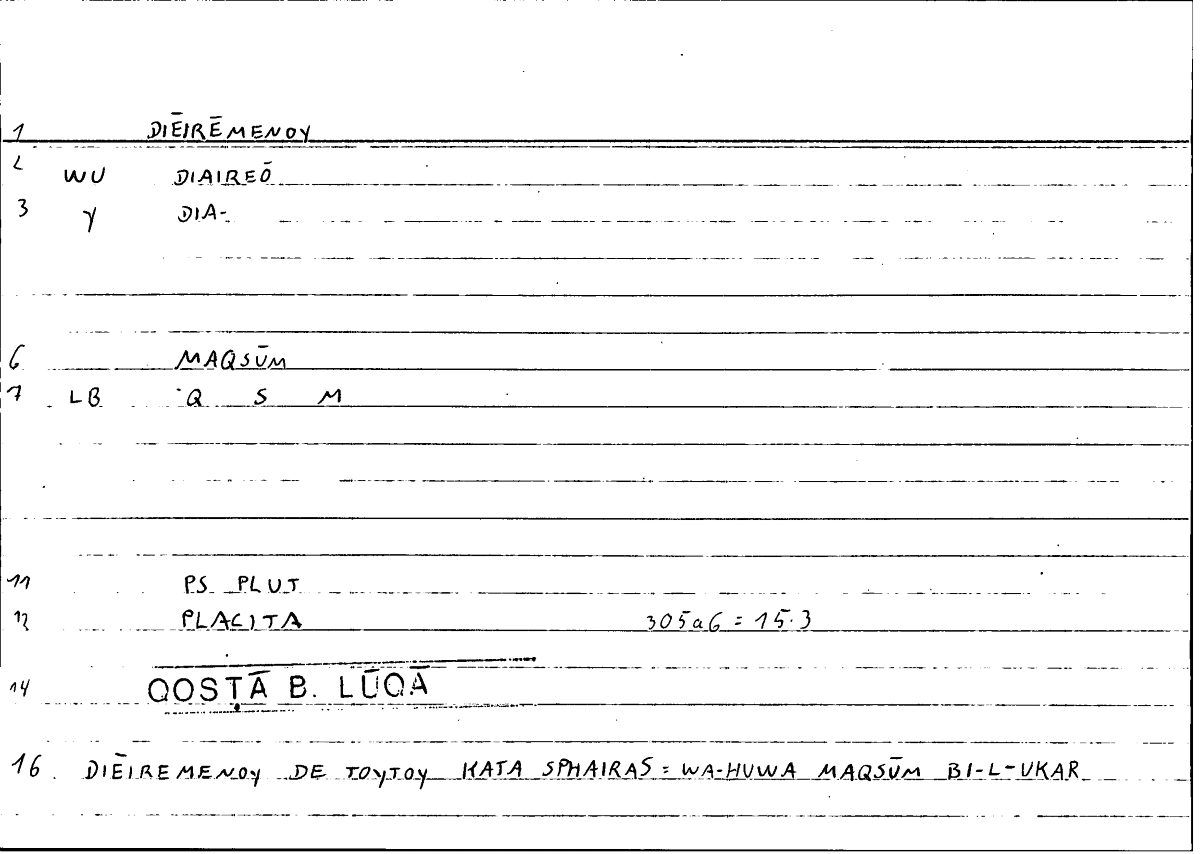 1 DIĒIRĒMENOY
2 WU DIAIREŌ
3 γ DIA-
6 MAQSŪM
7 LB Q S M
11 PS PLUT
12 PLACITA 305a6 = 15.3
14 QOSṬĀ B. LŪQĀ
16 DIĒIREMENOY DE TOYTOY KATA SPHAIRAS = WA-HUWA MAQSŪM BI-L-UKAR